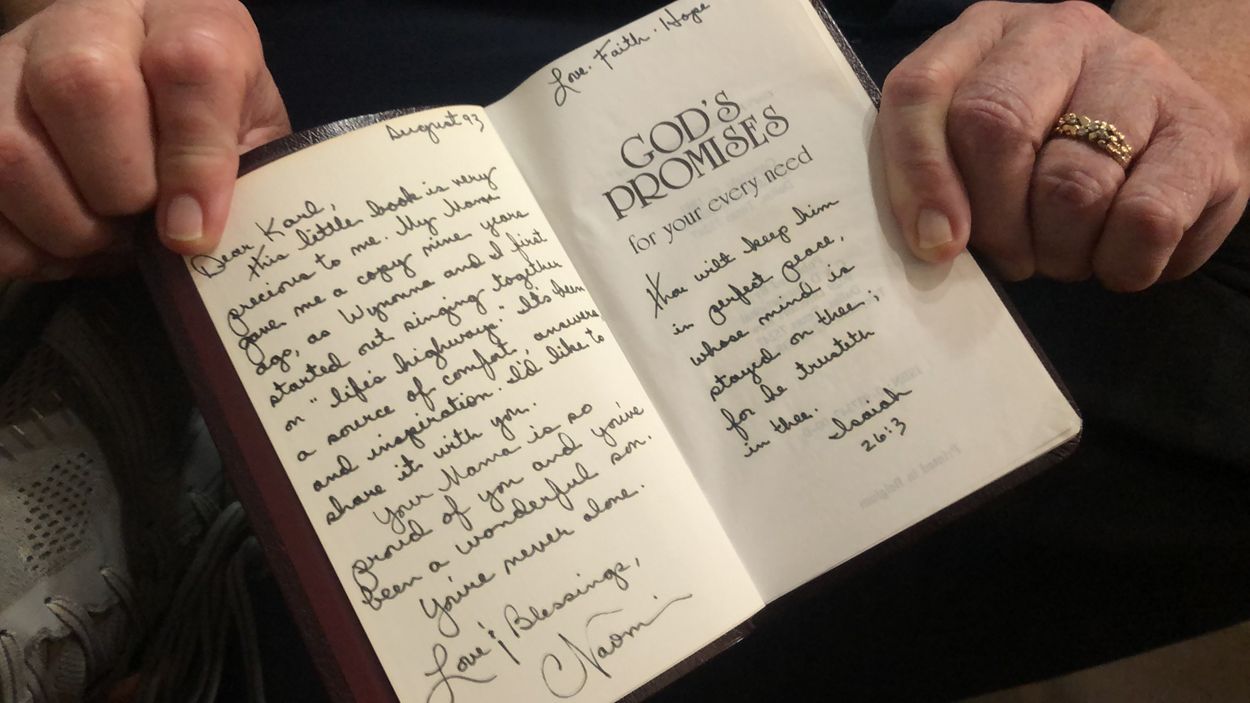 August 93
Dear Karl,
this little book is very
precious to me. My Mom
gave me a copy nine years
ago, as Wynonna and I first
started out singing together
on "life's highway." It's been
a source of comfort, answers
and inspiration. I'd like to
share it with you.
Your Mama is so
proud of you and you've
been a wonderful son.
You're never alone.
Love & Blessings,
Naomi
Love. Faith. Hope
GOD'S
PROMISES
for your every need
Thou wilt keep him
in perfect peace,
whose mind is
stayed on thee;
for he trusteth
in thee.
Isaiah
26:3
Printed in Belgium